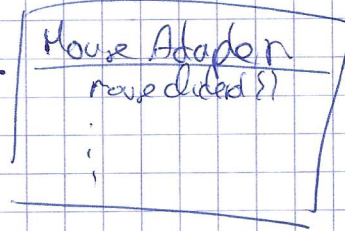 Mouse Adapter
mouseclicked {}
⋮